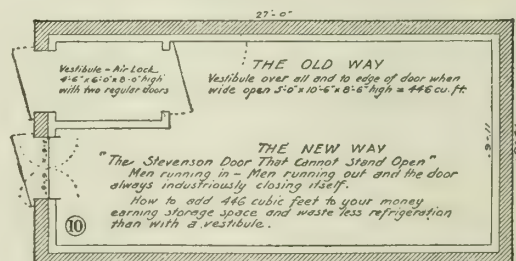 27'-0"
Vestibule - Air Lock
4'-6" x 6'-0" x 8'-0" high
with two regular doors
THE OLD WAY
Vestibule over all and to edge of door when
wide open 5'-0" x 10'-6" x 8'-6" high = 446 cu. ft.
THE NEW WAY
"The Stevenson Door That Cannot Stand Open"
Men running in - Men running out and the door
always industriously closing itself.
How to add 446 cubic feet to your money
earning storage space and waste less refrigeration
than with a vestibule.
10